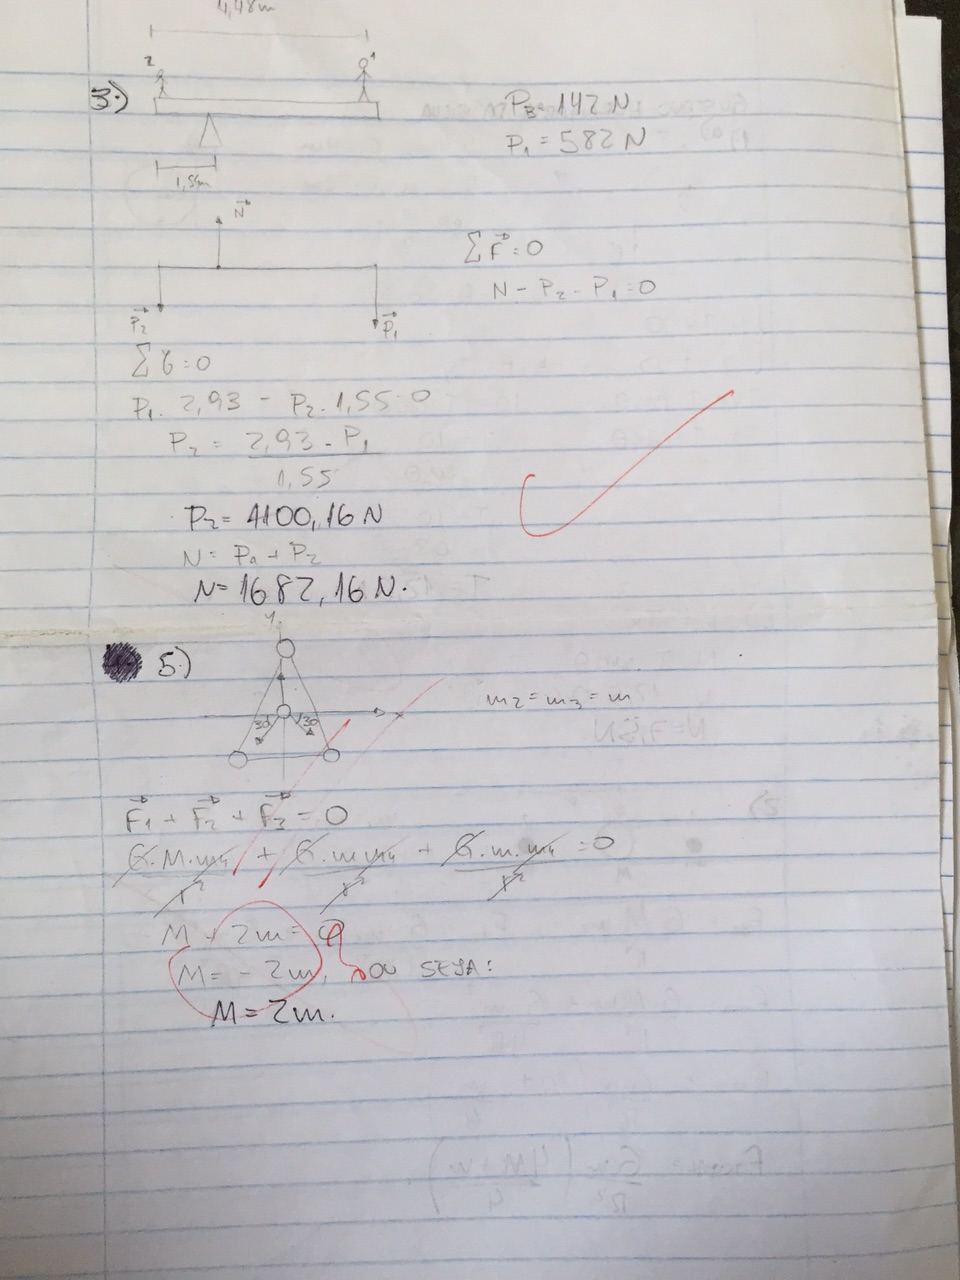 4,48m
2 1
3.)
P_B = 142 N
P₁ = 582 N
1,55m
N⃗
∑ F⃗ = 0
N - P₂ - P₁ = 0
P⃗₂ P⃗₁
∑ τ = 0
P₁ . 2,93 - P₂ . 1,55 = 0
P₂ = 2,93 . P₁
1,55
P₂ = 4100,16 N
N = P₁ + P₂
N = 1682,16 N.
y
5.)
x
m₂ = m₃ = m
30 30
F⃗₁ + F⃗₂ + F⃗₃ = 0
G.M.m₄ + G.m.m₄ + G.m.m₄ = 0
r² r² r²
M + 2m = 0
M = - 2m, OU SEJA:
M = 2m.